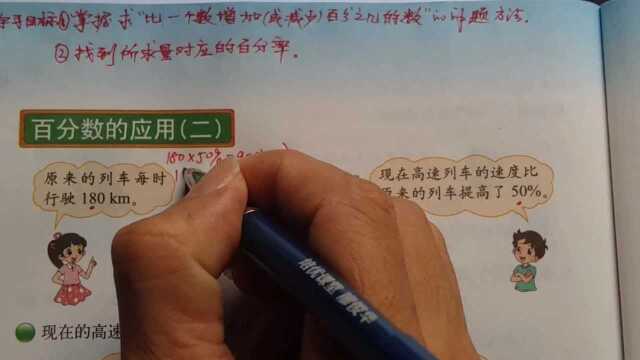 学习目标①掌握求“比一个数增加(或减少)百分之几的数”的问题方法.
②找到所求量对应的百分率.
百分数的应用(二)
180×50%=90
原来的列车每时
行驶180 km。
现在高速列车的速度比
原来的列车提高了50%。
现在的高速